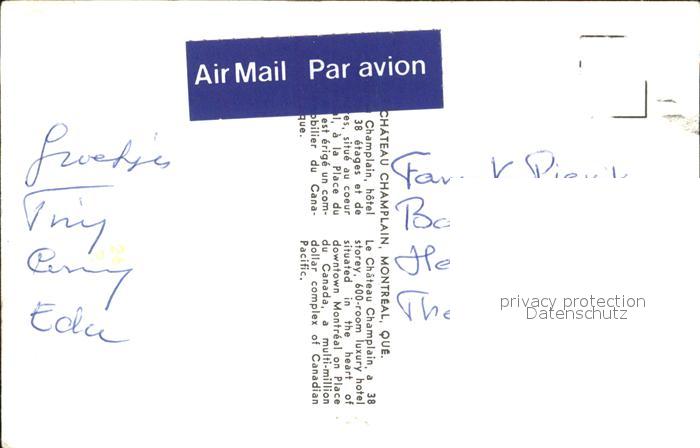 Air Mail Par avion
Groetjes
Tiny
Edu
Fam
Ba
He
The
CHÂTEAU CHAMPLAIN, MONTRÉAL, QUÉ.
Champlain, hôtel
38 étages et de
es, situé au coeur
l, à la Place du
est érigé un com-
obilier du Cana-
que.
Le Château Champlain, a 38
storey, 600-room luxury hotel
situated in the heart of
downtown Montréal on Place
du Canada, a multi-million
dollar complex of Canadian
Pacific.
privacy protection
Datenschutz